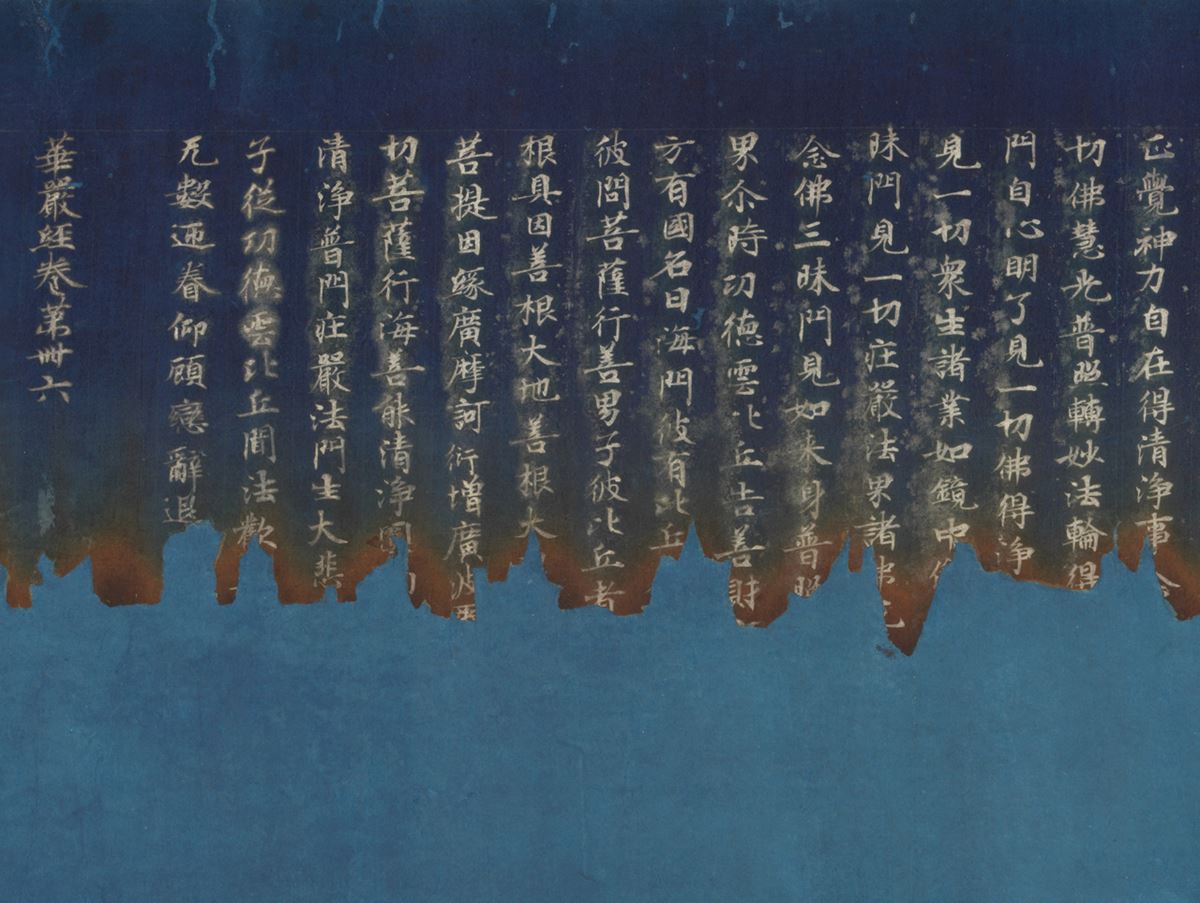 正覺神力自在得清淨事
切佛慧光普照轉妙法輪得
門自心明了見一切佛得淨
見一切衆生諸業如鏡中
昧門見一切庄嚴法界諸佛
念佛三昧門見如来身普照
界尒時功德雲比丘告善財
方有國名曰海門彼有比丘
彼問菩薩行善男子彼比丘者
根具因善根大地善根大
菩提因緣廣摩訶衍增廣波
切菩薩行海善能清淨
清淨普門庄嚴法門生大悲
子從功德雲比丘聞法歡
无數迊眷仰顧戀辭退
華嚴経卷苐卌六